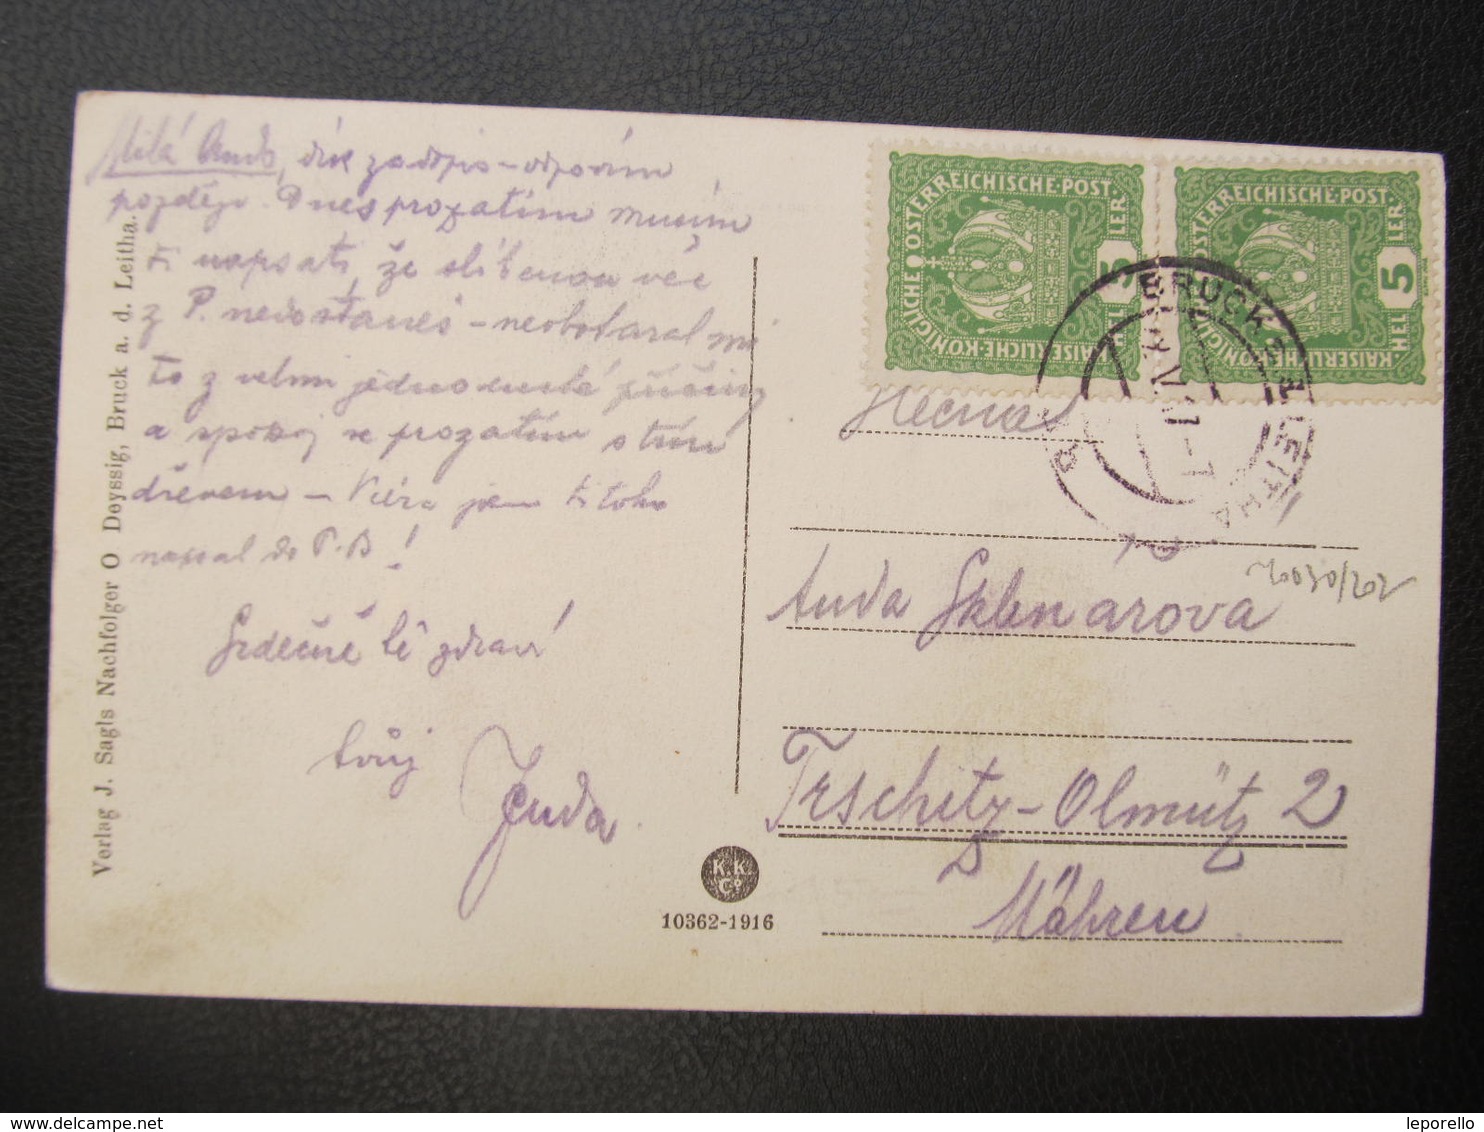 Milá Ando, dík za dopis - odpovím
později. Dnes prozatím musím
ti napsati, že slíbenou věc
z P. nedostaneš - neobstaral mi
to z velmi jednoduché příčiny
a spokoj se prozatím s tím
dřevem - Včera jsem ti toho
napsal do P.B!
Srdečně tě zdraví
tvůj
Jenda
Verlag J. Sagls Nachfolger O Deyssig, Bruck a. d. Leitha.
K.K. Co
10362-1916
KAISERLICHE-KÖNIGLICHE ÖSTERREICHISCHE-POST
5 HELLER
KAISERLICHE-KÖNIGLICHE ÖSTERREICHISCHE-POST
5 HELLER
BRUCK LEITHA
Slečna
Anda Sklenářova
20030/202
Trschitz - Olmütz 2
Mähren
leporello